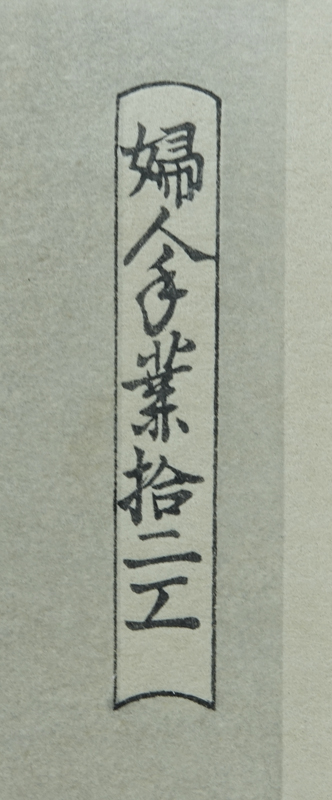 婦人手業拾二工